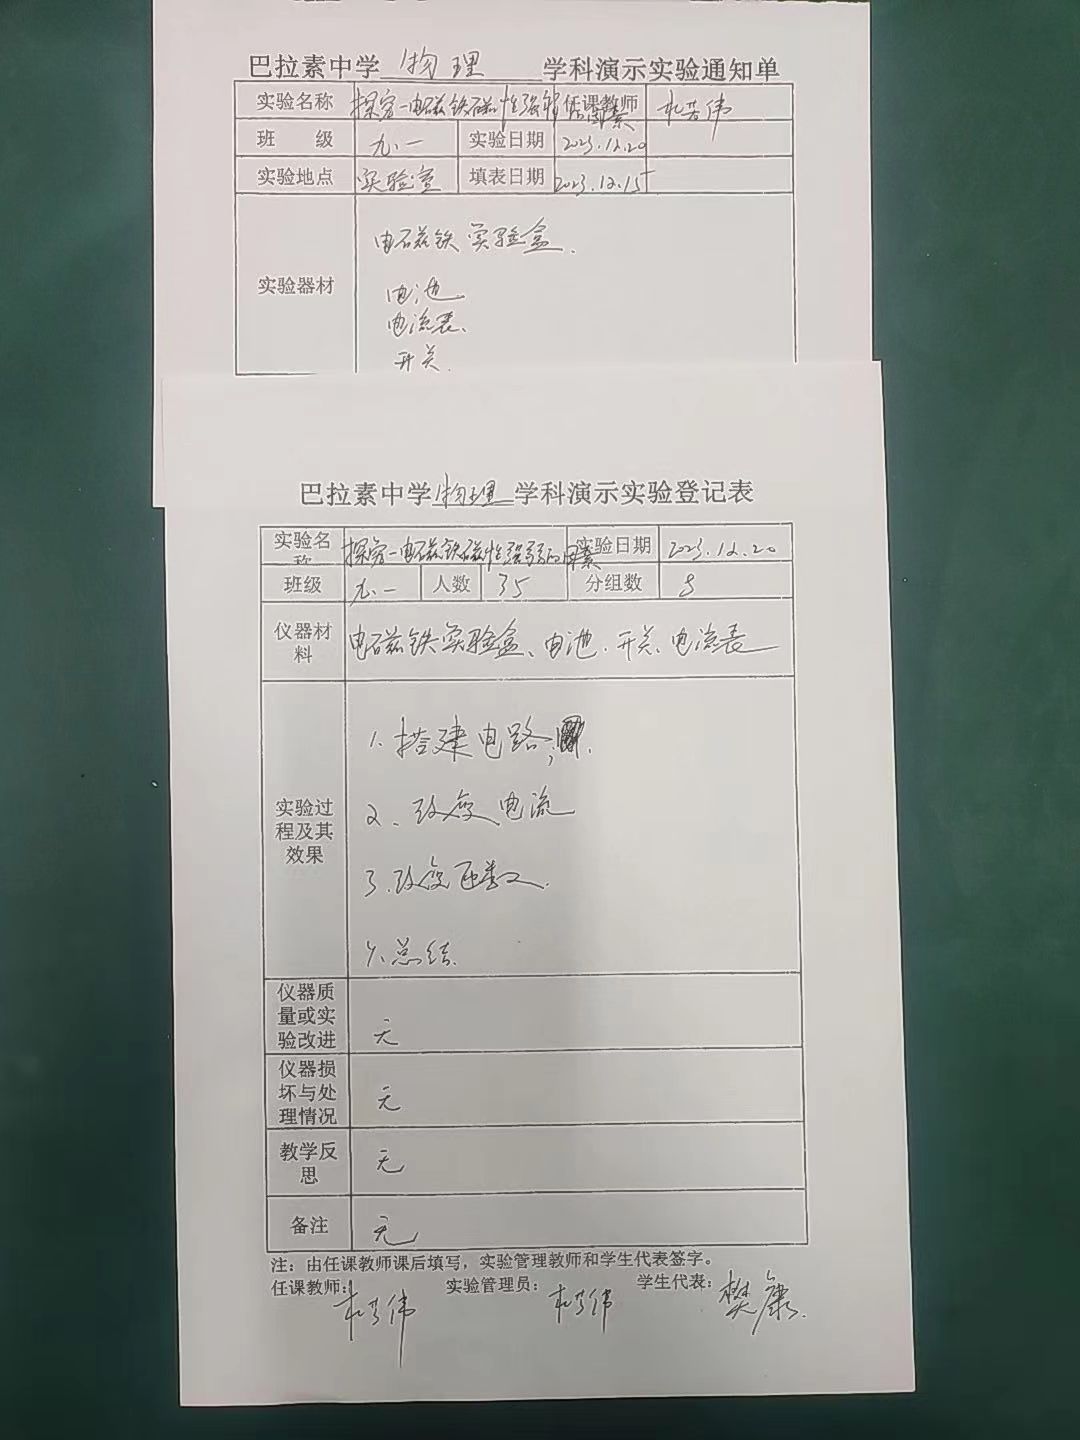 巴拉素中学 物理 学科演示实验通知单
实验名称 探究一电磁铁磁性强弱的因素 任课教师 杜芳伟
班 级 九.一 实验日期 2023.12.20
实验地点 实验室 填表日期 2023.12.15
电磁铁实验盒.
实验器材
电池
电流表、
开关.
巴拉素中学物理学科演示实验登记表
实验名称 探究一电磁铁磁性强弱的因素 实验日期 2023.12.20
班级 九.一 人数 35 分组数 8
仪器材料 电磁铁实验盒、电池.开关、电流表
1.搭建电路;
2、改变电流
实验过程及其效果
3.改变匝数.
4.总结.
仪器质量或实验改进 无
仪器损坏与处理情况 无
教学反思 无
备注 无
注：由任课教师课后填写，实验管理教师和学生代表签字。
任课教师：杜芳伟 实验管理员：杜芳伟 学生代表：樊康